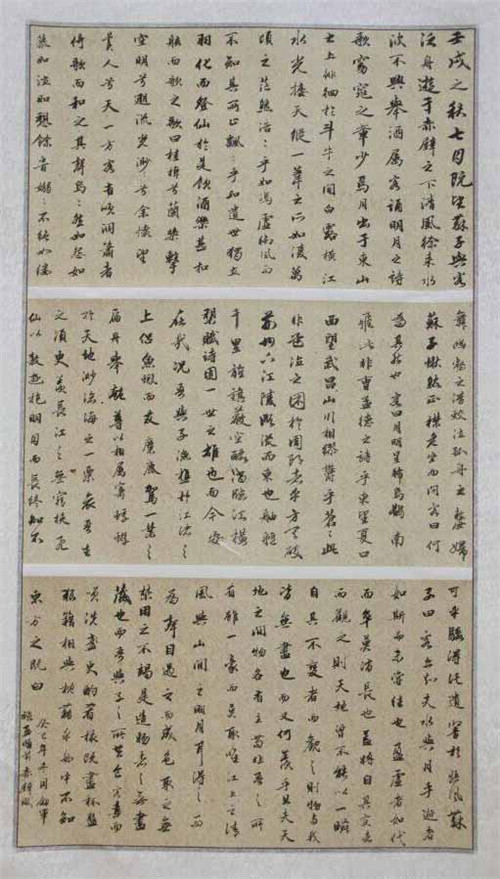 壬戌之秋七月既望蘇子與客
泛舟遊于赤壁之下清風徐來水
波不興舉酒屬客誦明月之詩
歌窈窕之章少焉月出于東山
之上徘徊於斗牛之間白露橫江
水光接天縱一葦之所如凌萬
頃之茫然浩〻乎如馮虛御風而
不知其所止飄〻乎如遺世獨立
羽化而登仙於是飲酒樂甚扣
舷而歌之歌曰桂棹兮蘭槳擊
空明兮溯流光渺〻兮余懷望
美人兮天一方客有吹洞簫者
倚歌而和之其聲嗚〻然如怨如
慕如泣如愬餘音嫋〻不絕如縷
舞幽壑之潛蛟泣孤舟之嫠婦
蘇子愀然正襟危坐而問客曰何
為其然也客曰月明星稀烏鵲南
飛此非曹孟德之詩乎東望夏口
西望武昌山川相繆鬱乎蒼〻此
非孟德之困於周郎者乎方其破
荊州下江陵順流而東也舳艫
千里旌旗蔽空釃酒臨江橫
槊賦詩固一世之雄也而今安
在哉況吾與子漁樵於江渚之
上侶魚蝦而友麋鹿駕一葉之
扁舟舉匏尊以相屬寄蜉蝣
於天地渺滄海之一粟哀吾生
之須臾羨長江之無窮挾飛
仙以遨遊抱明月而長終知不
可乎驟得託遺響於悲風蘇
子曰客亦知夫水與月乎逝者
如斯而未嘗往也盈虛者如代
而卒莫消長也蓋將自其變者
而觀之則天地曾不能以一瞬
自其不變者而觀之則物與我
皆無盡也而又何羨乎且夫天
地之間物各有主苟非吾之所
有雖一毫而莫取惟江上之清
風與山間之明月耳得之而
為聲目遇之而成色取之無
禁用之不竭是造物者之無盡
藏也而吾與子之所共食客喜而
笑洗盞更酌肴核既盡杯盤
狼籍相與枕藉乎舟中不知
東方之既白
癸巳年
前赤壁賦